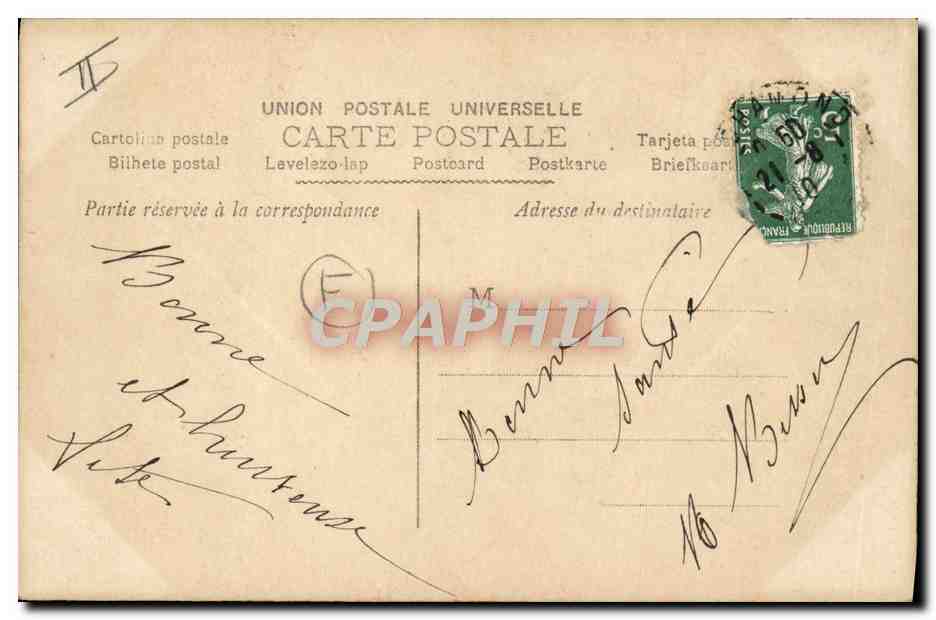 II
UNION POSTALE UNIVERSELLE
CARTE POSTALE
Cartolina postale
Tarjeta pos
Bilhete postal
Levelezo-lap
Postcard
Postkarte
Briefkaart
Partie réservée à la correspondance
Adresse du destinataire
POSTES
5c
REPUBLIQUE FRANÇ
21 -8
E
M
CPAPHIL
Bonne
et heureuse
fête
Bonne
santé